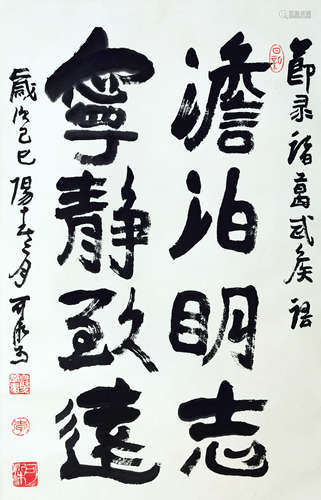 節录诸葛武侯语
澹泊明志
寧静致遠
歲次己巳陽春之月可染